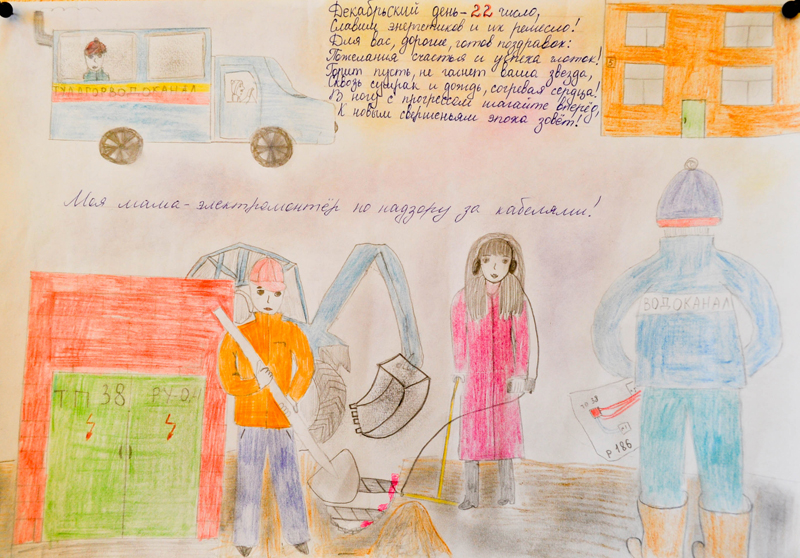 Декабрьский день - 22 число,
Славим энергетиков и их ремесло!
Для вас, дорогие, готов поздравок:
Пожелания счастья и успеха глоток!
Горит пусть, не гаснет ваша звезда,
Сквозь сумрак и дождь, согревая сердца!
В ногу с прогрессом шагайте вперёд,
К новым свершеньям эпоха зовёт!
ТУАВТОРВОДОКАНАЛ
Моя мама - электромонтёр по надзору за кабелями!
ВОДОКАНАЛ
ТП 38 РУ-0,4
Р 186